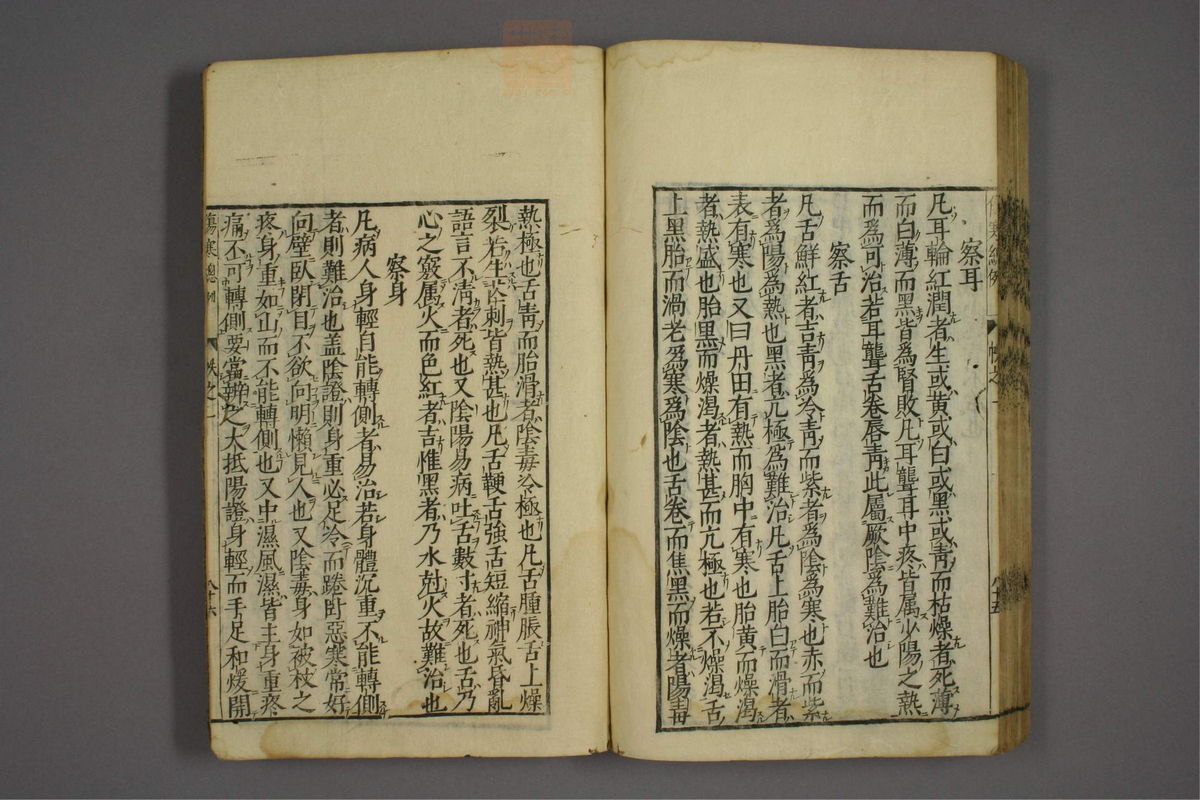 察耳
凡耳輪紅潤者生或黄或白或黑或靑而枯燥者死薄
而白薄而黑皆爲腎敗凡耳聾耳中疼皆属少陽之熱
而爲可治若耳聾舌卷唇靑此属厥陰爲難治也
察舌
凡舌鮮紅者吉靑爲冷靑而紫者爲陰爲寒也赤而紫
者爲陽爲熱也黑者亢極爲難治凡舌上胎白而滑者
表有寒也又曰丹田有熱而胸中有寒也胎黄而燥渴
者熱盛也胎黒而燥渴者熱甚而亢極也若不燥渴舌
上黒胎而滑者爲寒爲陰也舌卷而焦黑而燥者陽毒
熱極也舌靑而胎滑者陰毒冷極也凡舌腫脹舌上燥
裂若生芒刺皆熱甚也凡舌鞕舌強舌短縮神氣昏亂
語言不清者死也又陰陽易病吐舌數寸者死也舌乃
心之竅属火而色紅者吉惟黑者乃水尅火故難治也
察身
凡病人身輕自能轉側者易治若身體沉重不能轉側
者則難治也盖陰證則身重必足冷而踡臥惡寒常好
向壁臥閉目不欲向明懶見人也又陰毒身如被杖之
疼身重如山而不能轉側也又中濕風濕皆主身重疼
痛不可轉側要當辨之大抵陽證身輕而手足和煖開
傷寒總例
帙之一
八十五
八十六